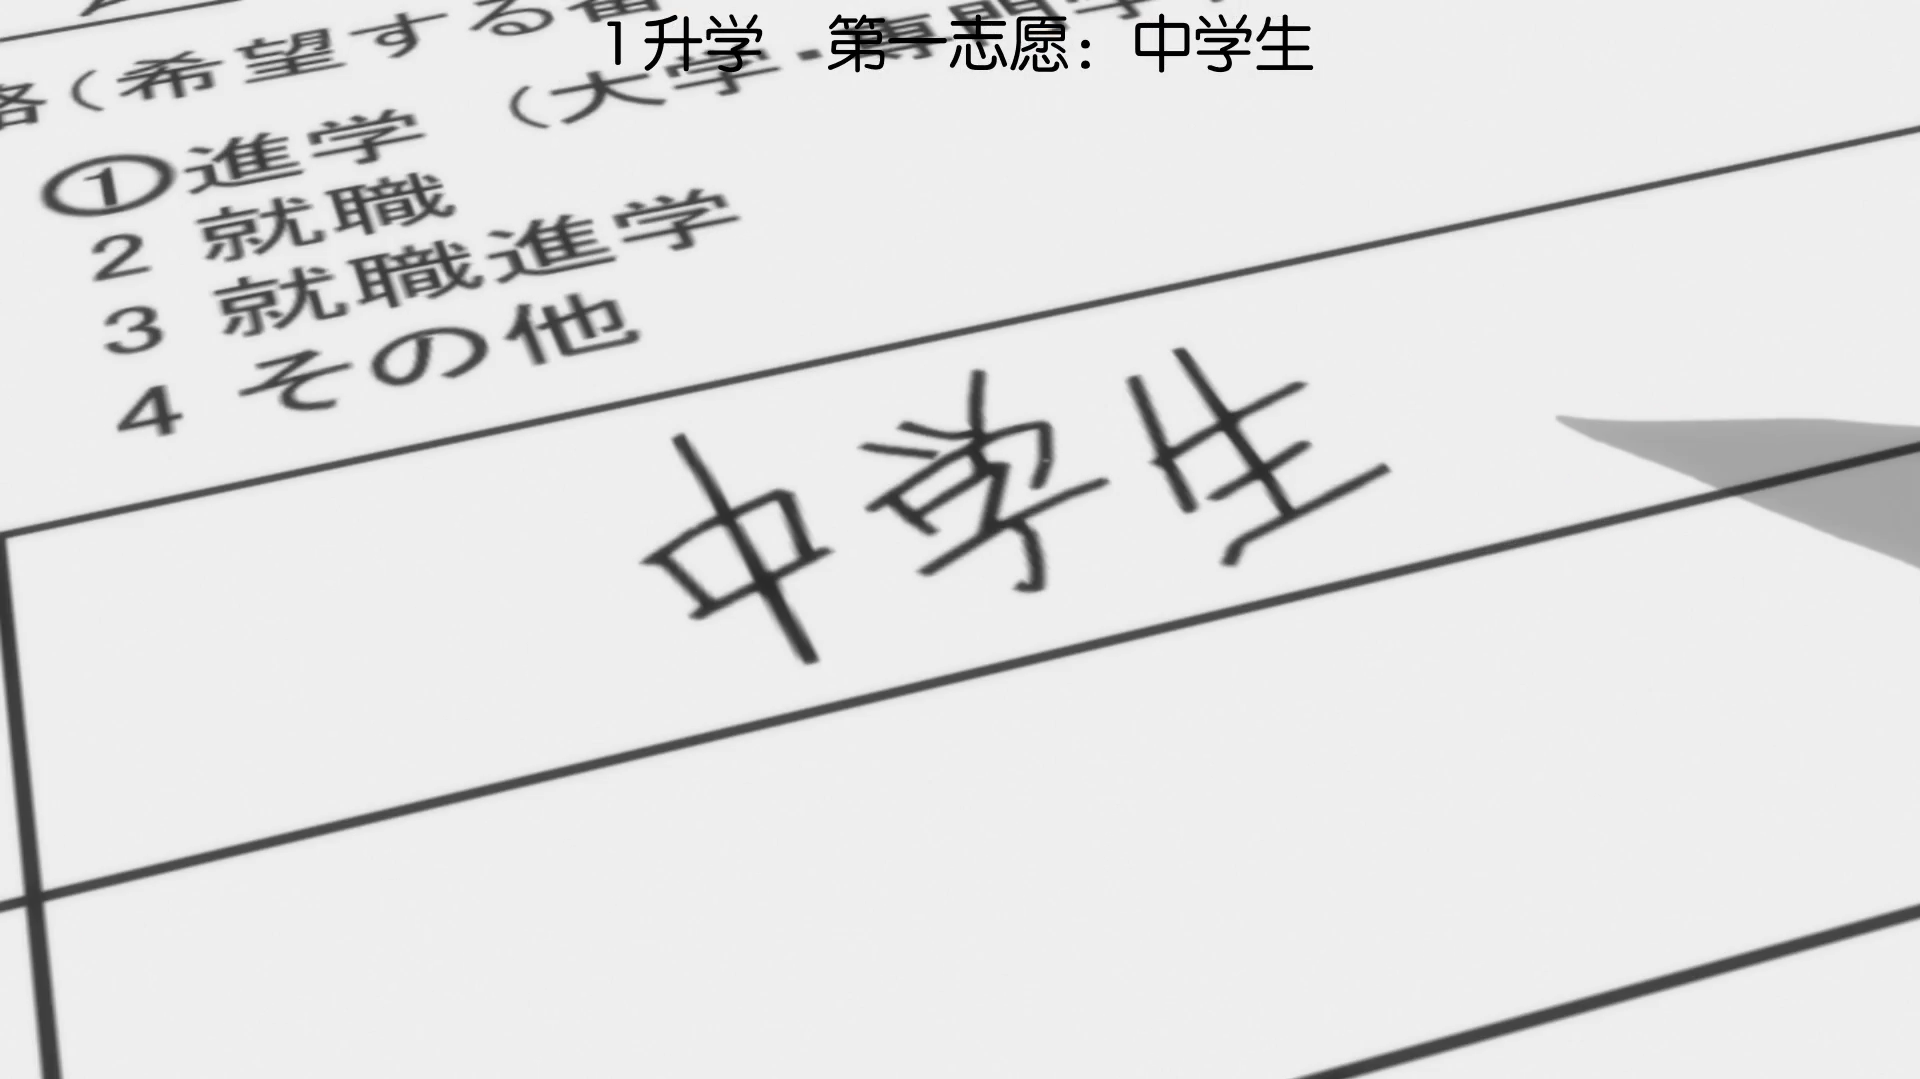 1升学 第一志愿：中学生
(希望する
①進学 (大学・専門学
2 就職
3 就職進学
4 その他
中学生